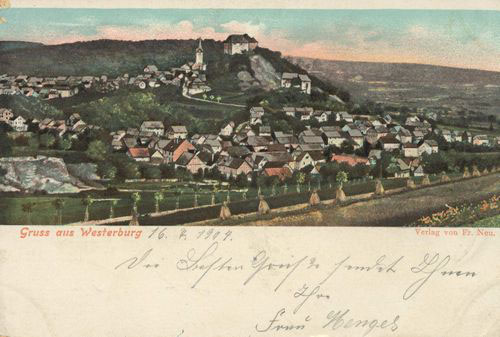 Gruss aus Westerburg 16. 7. 1904 Verlag von Fr. Neu.
Die Besten Grüsse sendet Ihnen
Ihre
Frau Menges